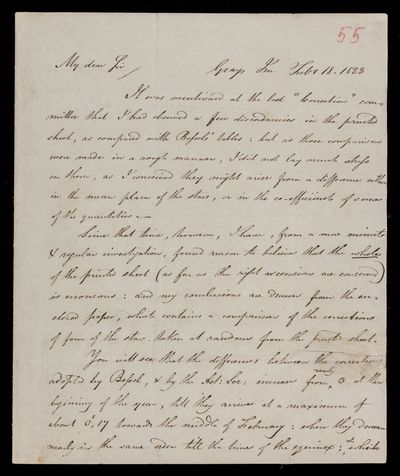 55
My dear Sir, Grays Inn Feby 18. 1823
It was mentioned at the last "Correction" com-
mittee that I had observed a few discordancies in the printed
sheet, as compared with Bessel's tables: but as those comparisons
were made in a rough manner, I did not lay much stress
on them, as I conceived they might arise from a difference either
in the mean place of the stars, or in the co-efficients of some
of the quantities.—
Since that time, however, I have, from a more minute
& regular investigation, found reason to believe that the whole
of the printed sheet (as far as the right ascensions are concerned)
is erroneous: and my conclusions are drawn from the en-
closed paper, which contains a comparison of the corrections
of four of the stars taken at random from the printed sheet.
You will see that the differences between the corrections
adopted by Bessel, & by the Ast: Soc: increase from nearly 0 at the
beginning of the year, till they arrive at a maximum of
about 0",17 towards the middle of February: when they decrease
nearly in the same order till the time of the equinox;